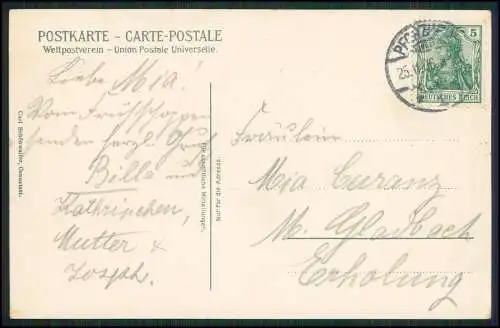 POSTKARTE – CARTE-POSTALE
Weltpostverein – Union Postale Universelle.
5
DEUTSCHES REICH
25.
Liebe Mia!
Vom Frühschoppen
senden herzl. Gruß
Billa und
Kathrinchen,
Mutter &
Joseph.
Carl Schönwalter,
Für schriftliche Mitteilungen.
Nur für die Adresse.
Fräulein
Mia Curanz
M. Gladbach
Erholung